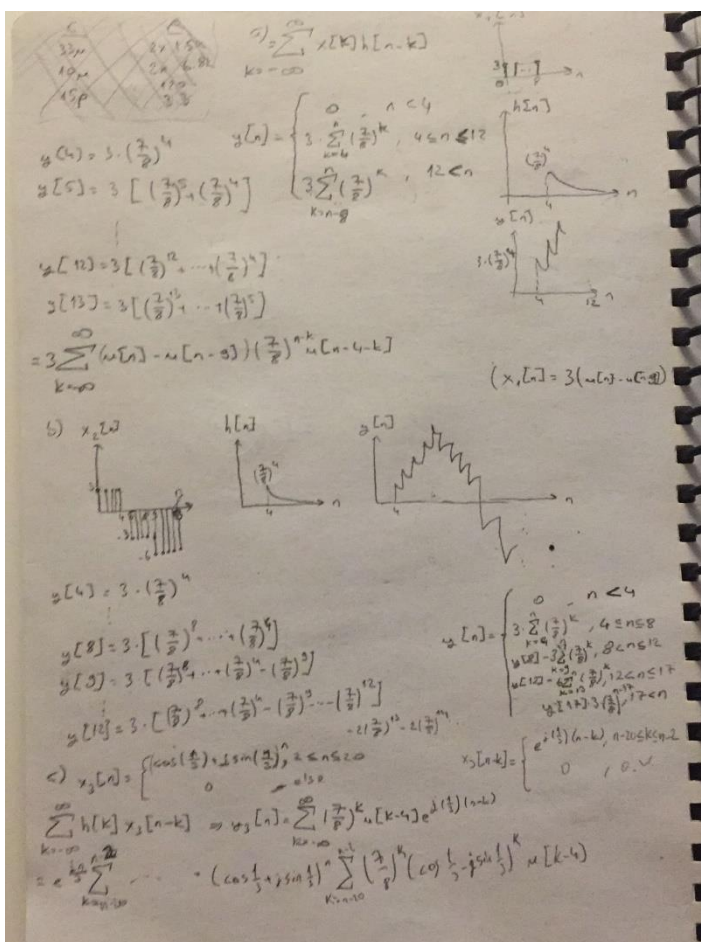 33μ
10μ
15p
a) = ∑_{k=-∞}^{∞} x[k] h[n-k]
h[n]
(7/8)^4
4
n
y[n] = { 0 , n<4
3·∑_{k=4}^{n} (7/8)^k , 4≤n≤12
3∑_{k=n-8}^{n} (7/8)^k , 12<n
y(4) = 3·(7/8)^4
y[5] = 3[(7/8)^5+(7/8)^4]
y[n]
3·(7/8)^4
4
12
n
y[12] = 3[(7/8)^12+···+(7/8)^4]
y[13] = 3[(7/8)^13+···+(7/8)^5]
= 3∑_{k=-∞}^{∞} (u[n]-u[n-9])(7/8)^{n-k} u[n-4-k]
(x₁[n] = 3(u[n]-u[n-9])
b) x₂[n]
h[n]
y[n]
3
4
-3
-6
(7/8)^4
4
n
4
n
y[4] = 3·(7/8)^4
y[8] = 3·[(7/8)^8+···+(7/8)^4]
y[9] = 3[(7/8)^8+···+(7/8)^4-(7/8)^9]
y[12] = 3·[(7/8)^8+···+(7/8)^4-(7/8)^9-···-(7/8)^12]
y[n] = { 0 , n<4
3·∑_{k=4}^{n} (7/8)^k , 4≤n≤8
y[8]-3∑_{k=9}^{n} (7/8)^k , 8<n≤12
y[12]-6∑_{k=13}^{n} (7/8)^k , 12<n≤17
y[17]·3(7/8)^{n-17} , 17<n
c) x₃[n] = { (cos(1/3)+jsin(1/3))^n , 2≤n≤20
0
x₃[n-k] = { e^{j(1/3)(n-k)} , n-20≤k≤n-2
0 , o.w
∑_{k=-∞}^{∞} h[k] x₃[n-k] ⇒ y₃[n] = ∑_{k=-∞}^{∞} (7/8)^k u[k-4] e^{j(1/3)(n-k)}
= e^{jn/3} ∑ ···· · (cos 1/3+jsin 1/3)^n ∑_{k=n-20}^{n-2} (7/8)^k (cos 1/3-jsin 1/3)^k u[k-4]